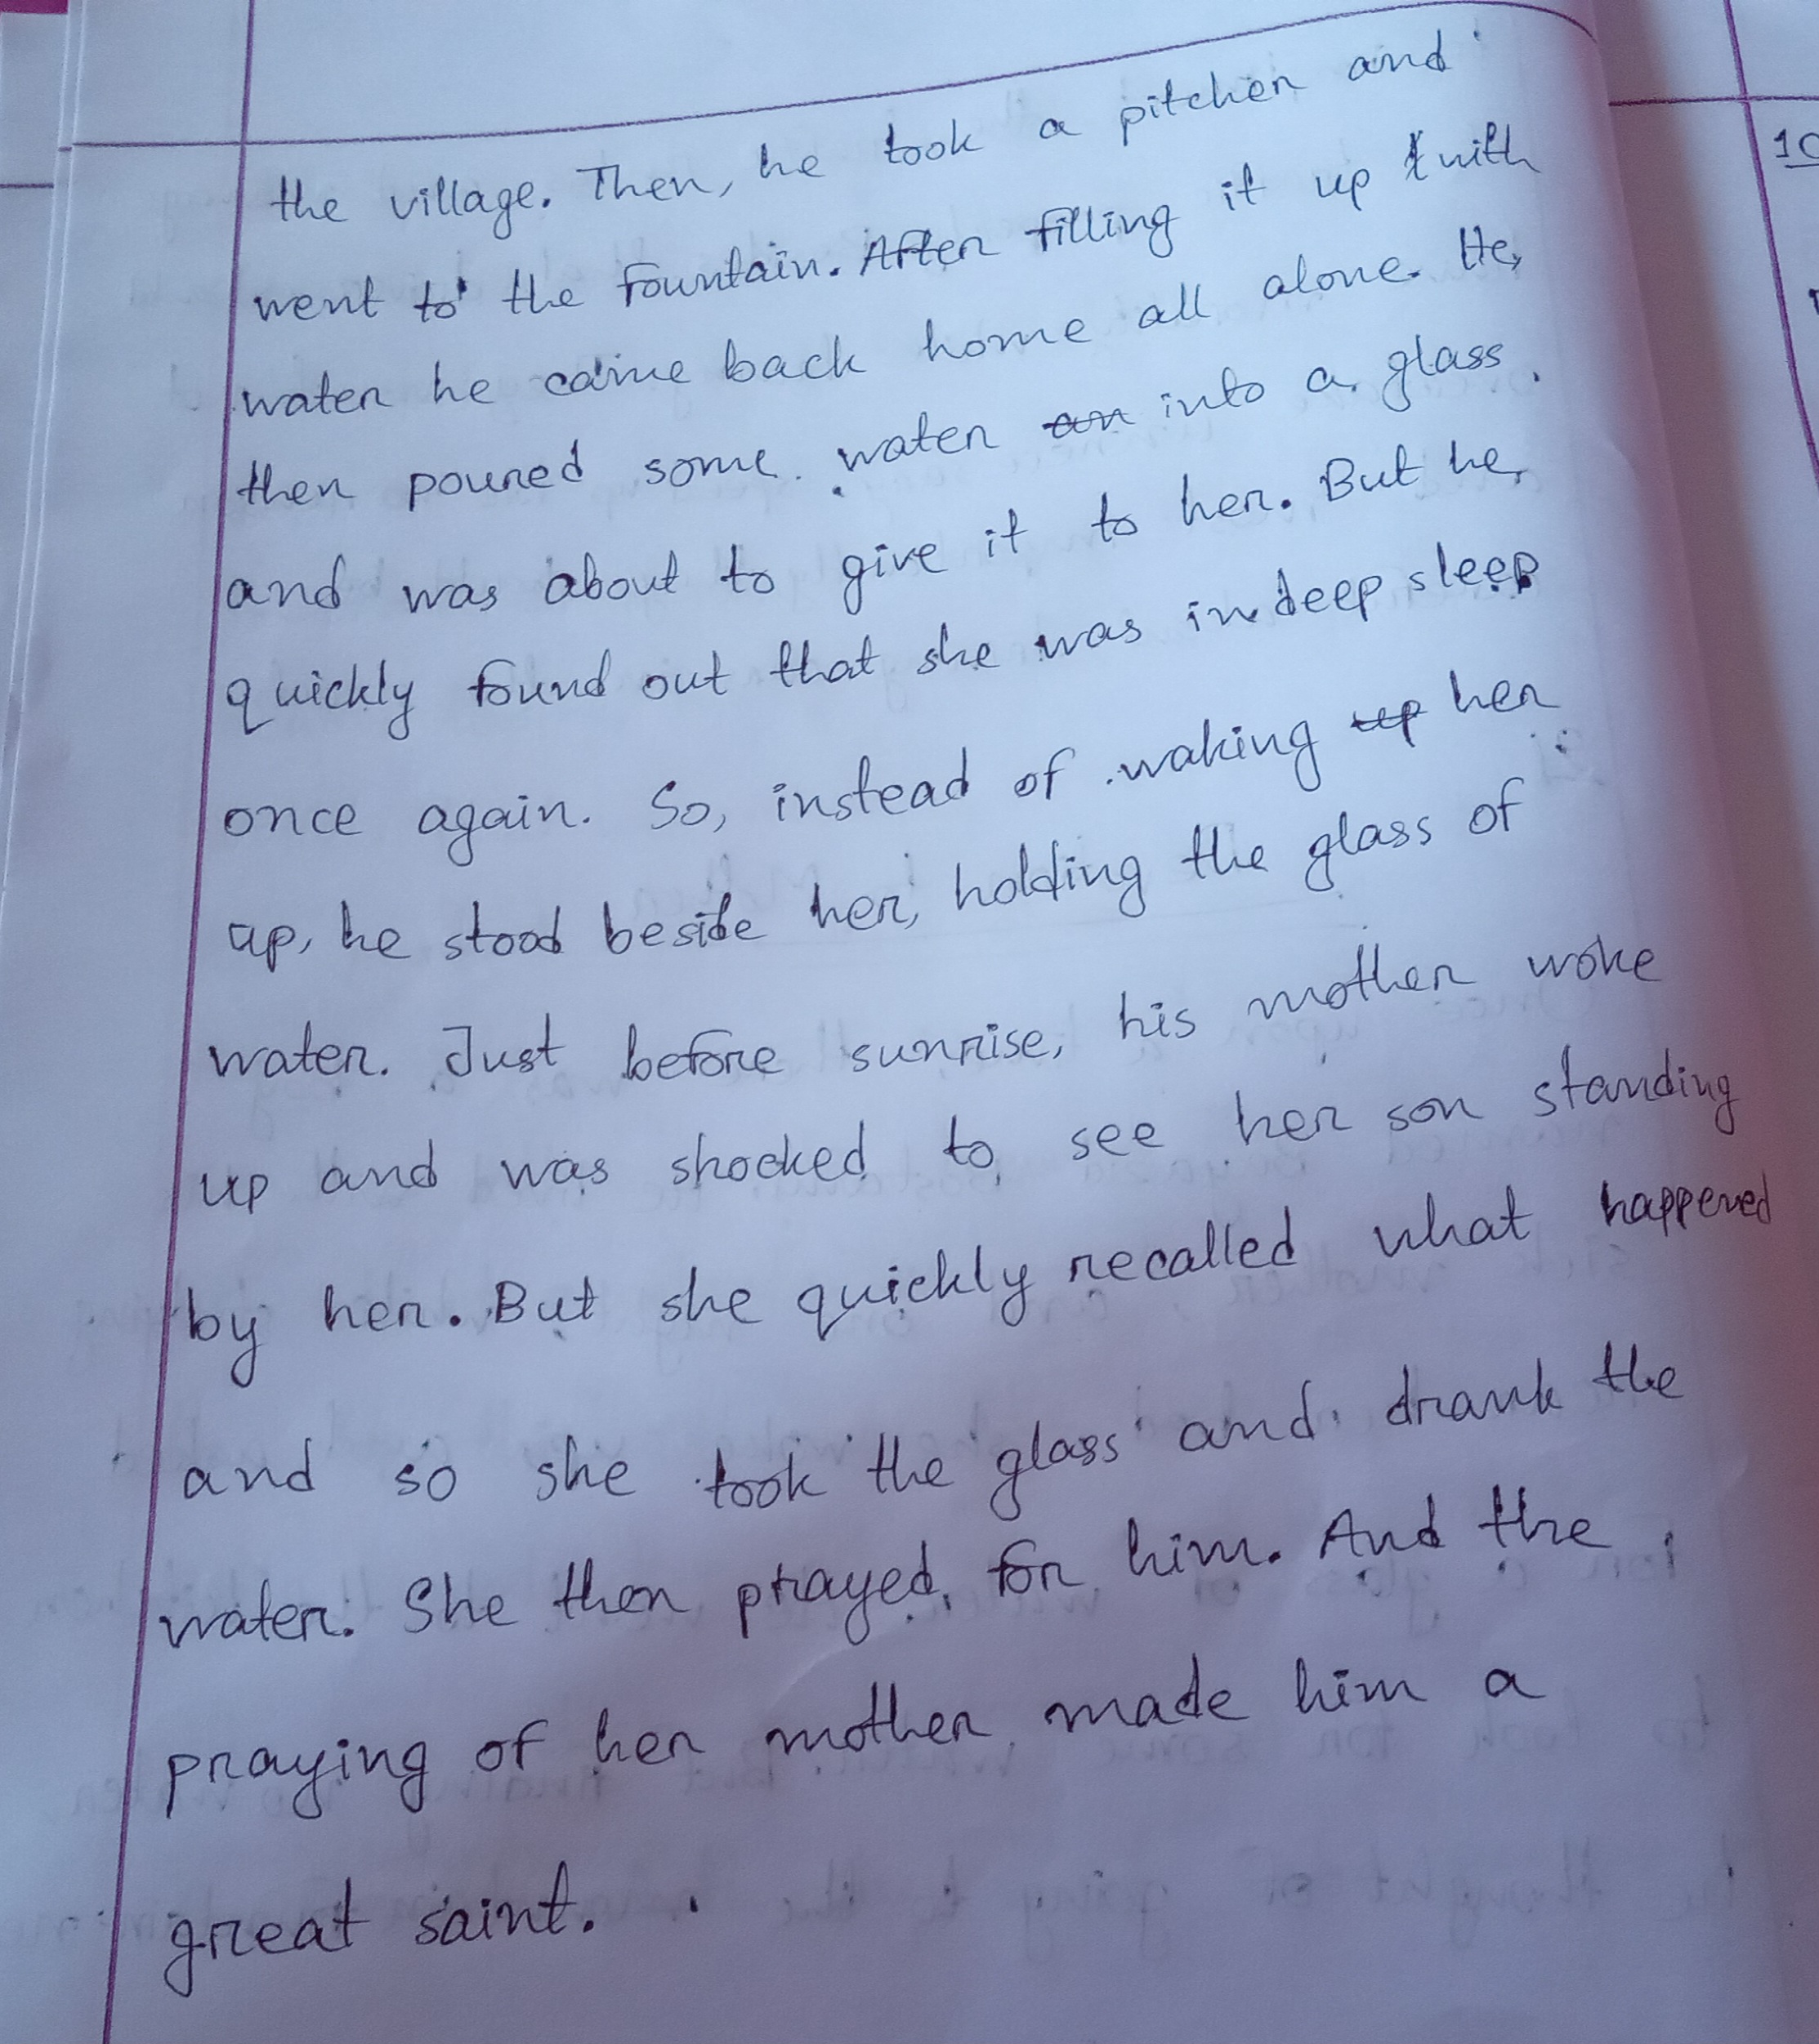 the village. Then, he took a pitcher and
went to the fountain. After filling it up with
water he came back home all alone. He,
then poured some water an into a glass
and was about to give it to her. But he,
quickly found out that she was in deep sleep
once again. So, instead of waking up her
up, he stood beside her, holding the glass of
water. Just before sunrise, his mother woke
up and was shocked to see her son standing
by her. But she quickly recalled what happened
and so she took the glass and drank the
water. She then prayed for him. And the
praying of her mother made him a
great saint.
10